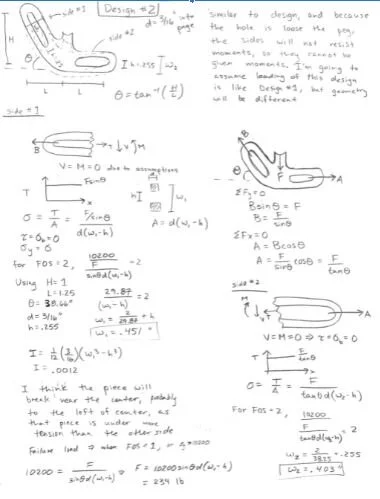 side #1
Design #2
d= 3/16" into page
side #2
H
h=.255
w₂
θ
L
L
θ = tan⁻¹(H/L)
similar to design, and because
the hole is loose the peg,
the sides will not resist
moments, so they cannot be
given moments. I'm going to
assume loading of this design
is like Design #1, but geometry
will be different
side #1
B
T
V
M
V = M = 0 due to assumptions
T
F/sinθ
x
h
w₁
σ = T/A = F/sinθ / d(w₁-h)
A = d(w₁-h)
τ=σb=0
σy = 0
for FOS = 2, 10200 / F/sinθd(w₁-h) = 2
Using H=1
L=1.25
θ= 38.66°
d= 3/16"
h=.255
29.87 / (w₁-h) = 2
w₁ = 2/29.87 + h
w₁ = .451"
I = 1/12 (3/16)(w₁³-h³)
I = .0012
I think the piece will
break near the center, probably
to the left of center, as
that piece is under more
tension than the other side
Failure load ⇒ when FOS=1,
10200 = F / sinθd(w₁-h) ⇒ F = 10200 sinθd(w₁-h)
= 234 lb
B
θ
F
A
ΣFy=0
Bsinθ = F
B = F/sinθ
ΣFx=0
A = Bcosθ
A = F/sinθ cosθ = F/tanθ
side #2
M
V
T
A
V=M=0 ⇒ τ=σb=0
T
F/tanθ
x
σ = T/A = F / tanθd(w₂-h)
For FOS=2, 10200 / F/tanθd(w₂-h) = 2
w₂ = 2/38.25 + .255
w₂ = .403"